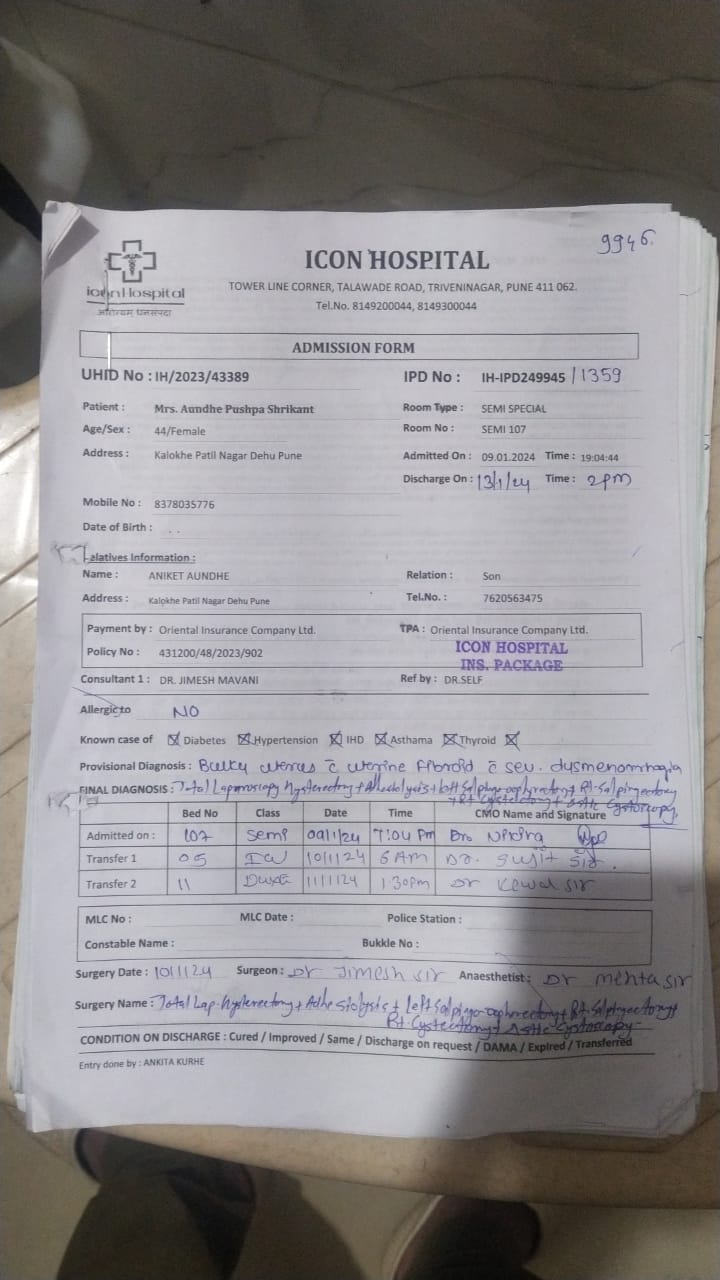 9946.
ICON HOSPITAL
icon Hospital
TOWER LINE CORNER, TALAWADE ROAD, TRIVENINAGAR, PUNE 411 062.
Tel.No. 8149200044, 8149300044
ADMISSION FORM
UHID No : IH/2023/43389 IPD No : IH-IPD249945 /1359
Patient : Mrs. Aundhe Pushpa Shrikant Room Type : SEMI SPECIAL
Age/Sex : 44/Female Room No : SEMI 107
Address : Kalokhe Patil Nagar Dehu Pune Admitted On : 09.01.2024 Time : 19:04:44
Discharge On : 13/1/24 Time : 2pm
Mobile No : 8378035776
Date of Birth : . .
elatives Information :
Name : ANIKET AUNDHE Relation : Son
Address : Kalokhe Patil Nagar Dehu Pune Tel.No. : 7620563475
Payment by : Oriental Insurance Company Ltd. TPA : Oriental Insurance Company Ltd.
Policy No : 431200/48/2023/902 ICON HOSPITAL
INS. PACKAGE
Consultant 1 : DR. JIMESH MAVANI Ref by : DR.SELF
Allergic to NO
Known case of Diabetes Hypertension IHD Asthama Thyroid
Provisional Diagnosis : Bulky uterus c̄ uterine fibroid c̄ sev.
FINAL DIAGNOSIS : Total Laparoscopy Hysterectomy + + left + Rt.
+ Rt Cystectomy + Cystoscopy
Bed No Class Date Time CMO Name and Signature
Admitted on : 107 Semi 09/1/24 7:04 pm
Transfer 1 05 10/1/24 6 AM Dr. Sujit Sir.
Transfer 2 11 11/1/24 1:30pm Dr Kewal sir
MLC No : MLC Date : Police Station :
Constable Name : Bukkle No :
Surgery Date : 10/1/24 Surgeon : Dr Jimesh sir Anaesthetist : Dr mehta sir
Surgery Name : Total Lap. Hysterectomy + Adhesiolysis + Left Salpingo-oophorectomy + Rt. Salpingectomy +
Rt. Cystectomy + Cystoscopy
CONDITION ON DISCHARGE : Cured / Improved / Same / Discharge on request / DAMA / Expired / Transferred
Entry done by : ANKITA KURHE